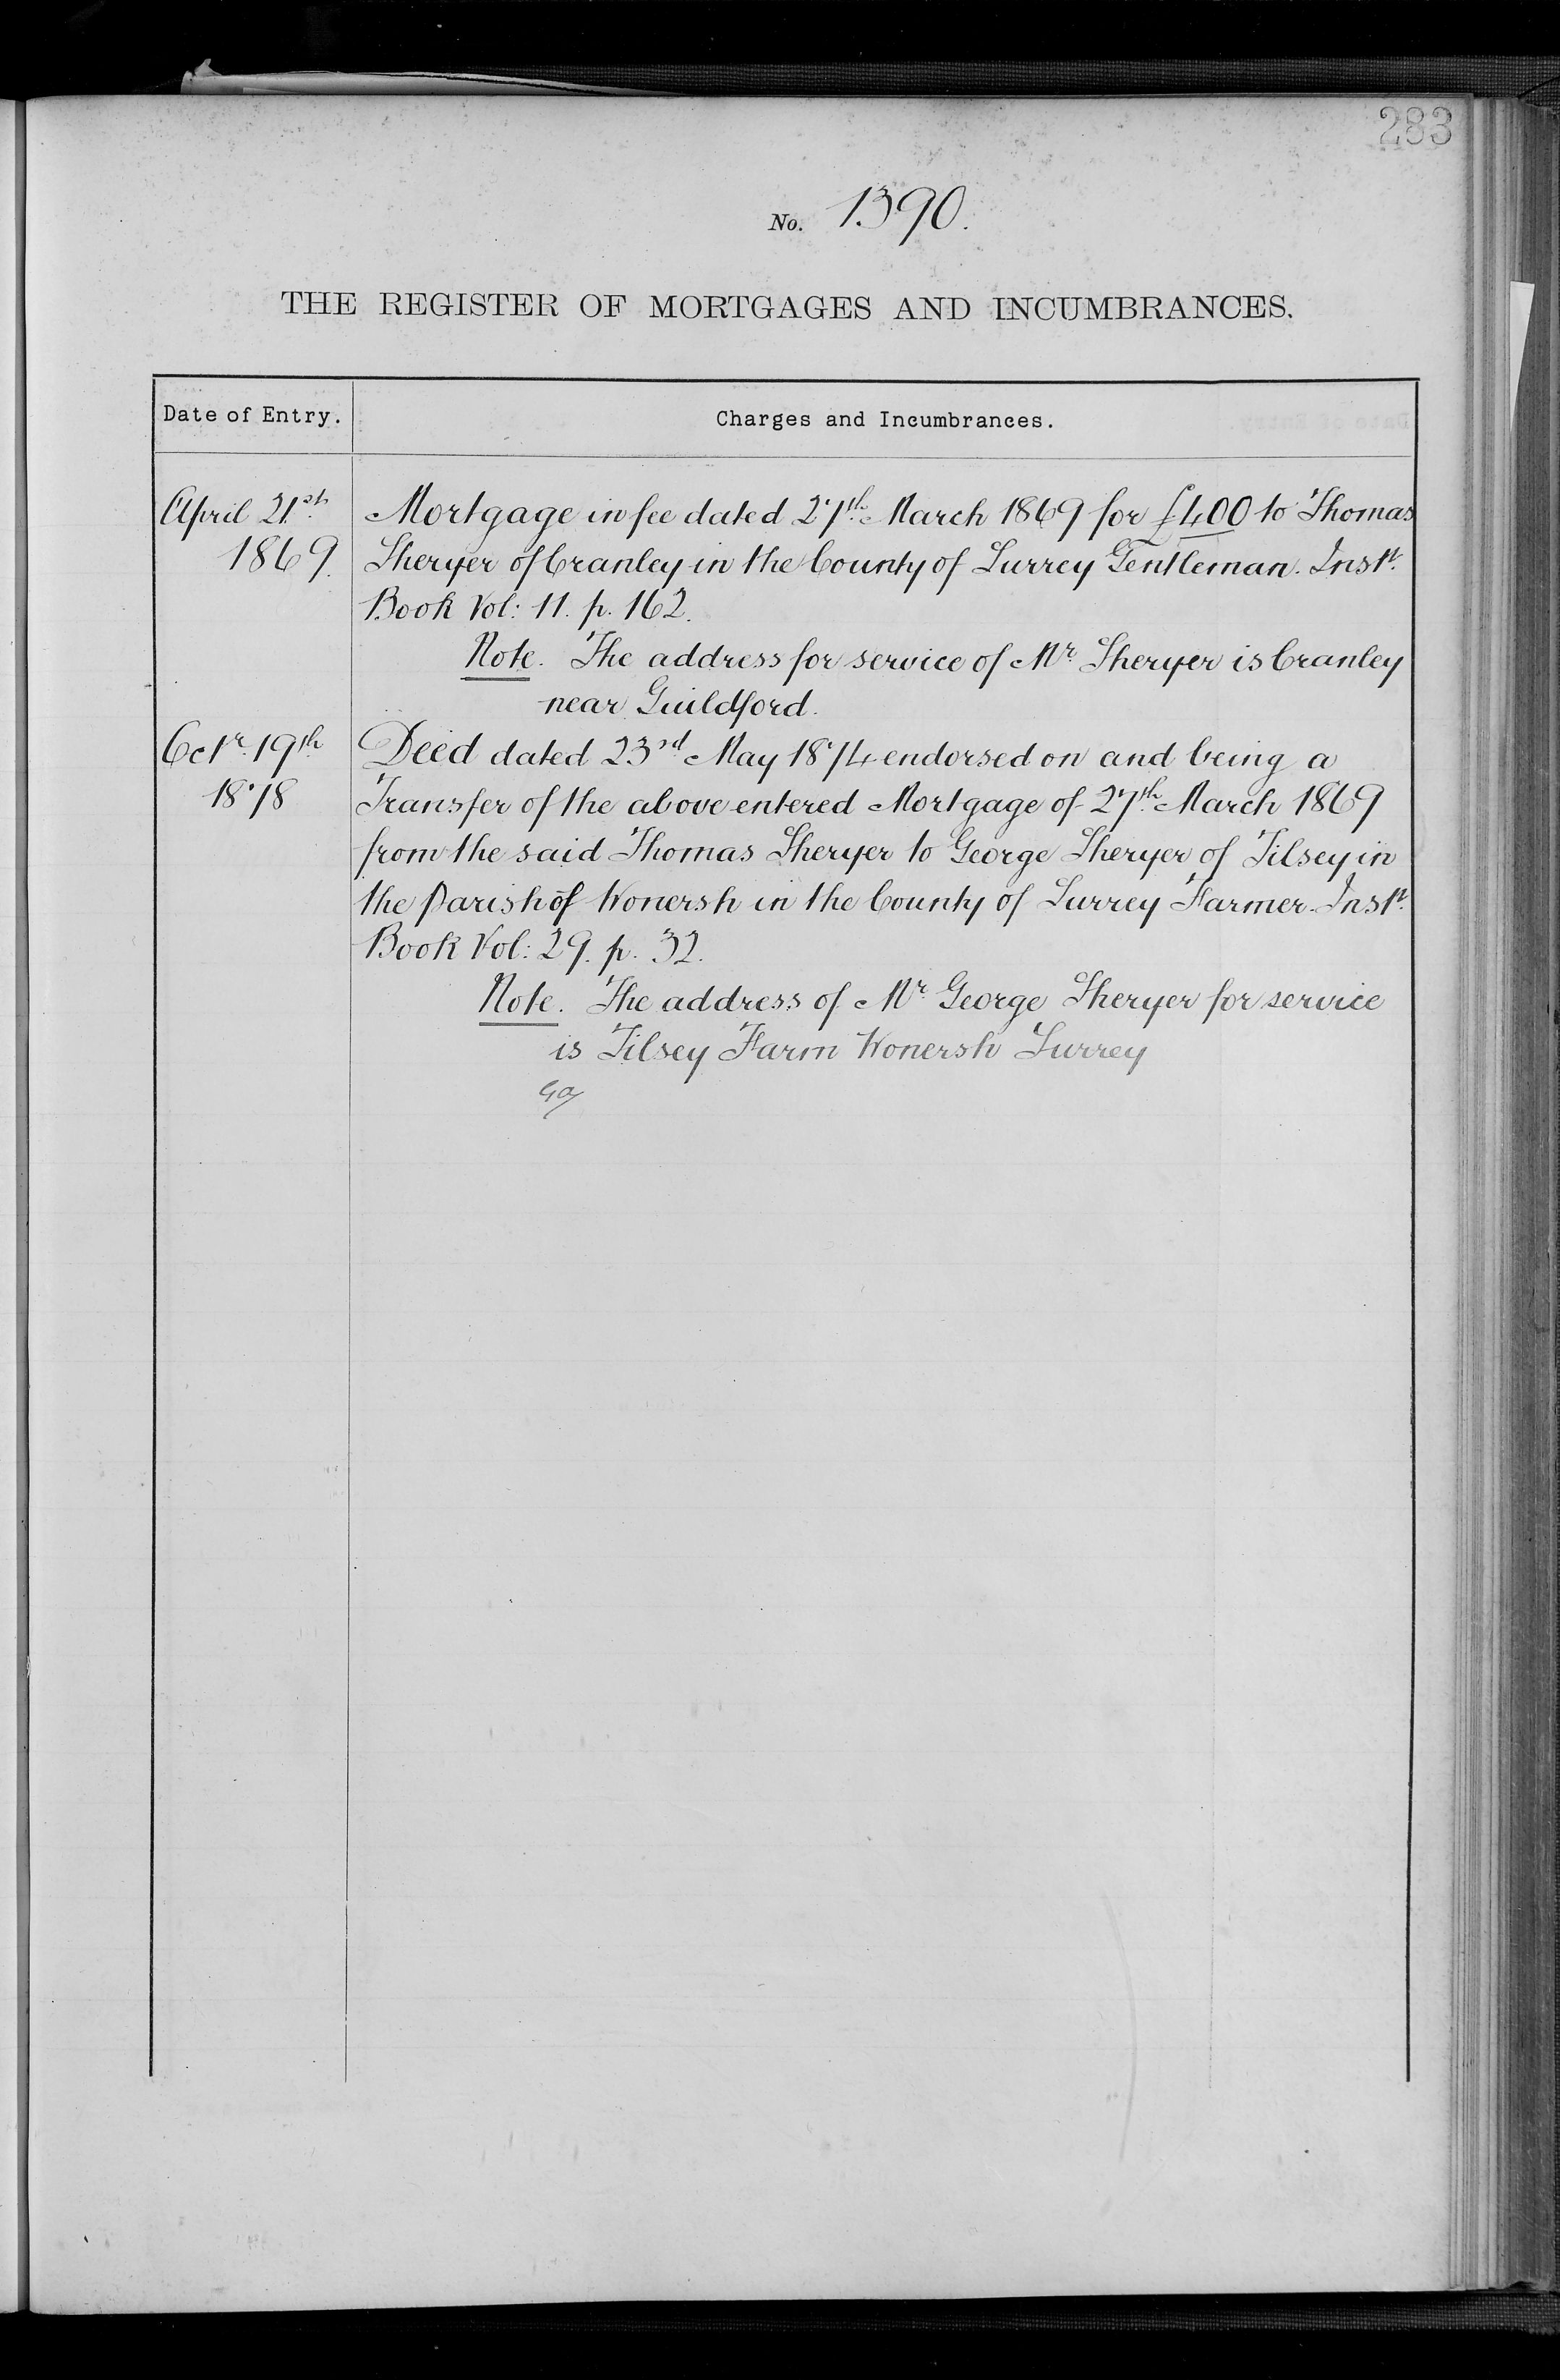 283
No. 1390.
THE REGISTER OF MORTGAGES AND INCUMBRANCES.
Date of Entry. Charges and Incumbrances.
April 21st Mortgage in fee dated 27th March 1869 for £400 to Thomas
1869. Sheryer of Cranley in the County of Surrey Gentleman. Inst.
Book Vol: 11. p. 162.
Note. The address for service of Mr. Sheryer is Cranley
near Guildford.
Octr. 19th Deed dated 23rd May 1874 endorsed on and being a
1878 Transfer of the above entered Mortgage of 27th March 1869
from the said Thomas Sheryer to George Sheryer of Tilsey in
the Parish of Wonersh in the County of Surrey Farmer. Inst.
Book Vol: 29. p. 32.
Note. The address of Mr. George Sheryer for service
is Tilsey Farm Wonersh Surrey